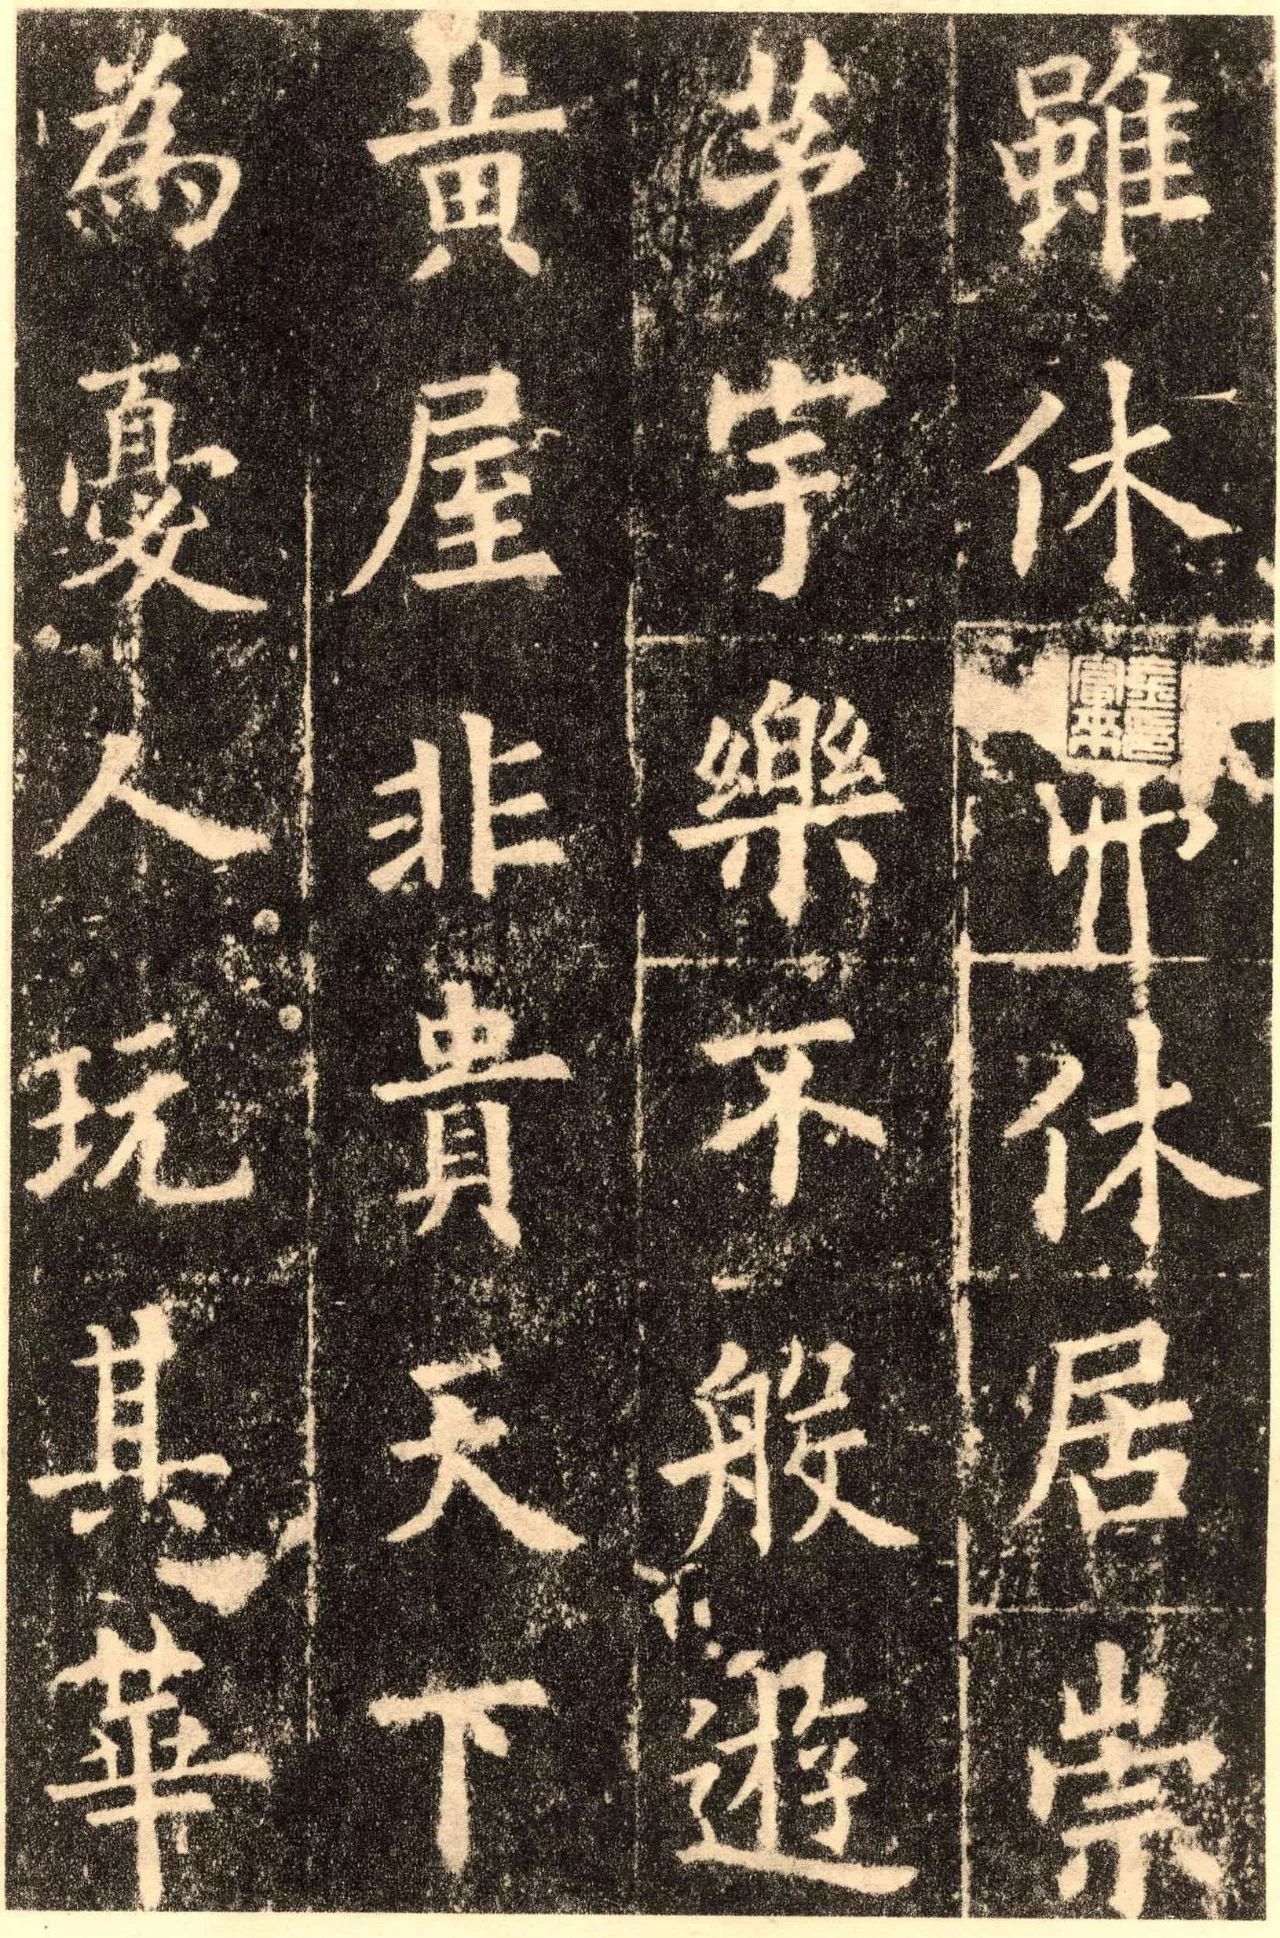 雖休弗休居崇
茅宇樂不般遊
黃屋非貴天下
為憂人玩其華